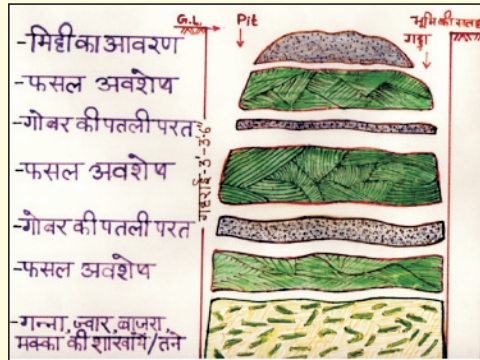 G.L.
Pit
भूमि की सतह
गड्ढा
-मिट्टी का आवरण
-फसल अवशेष
-गोबर की पतली परत
-फसल अवशेष
गहराई-3'-3'.6"
-गोबर की पतली परत
-फसल अवशेष
-गन्ना, ज्वार, बाजरा,
मक्का की शाखायें/तने